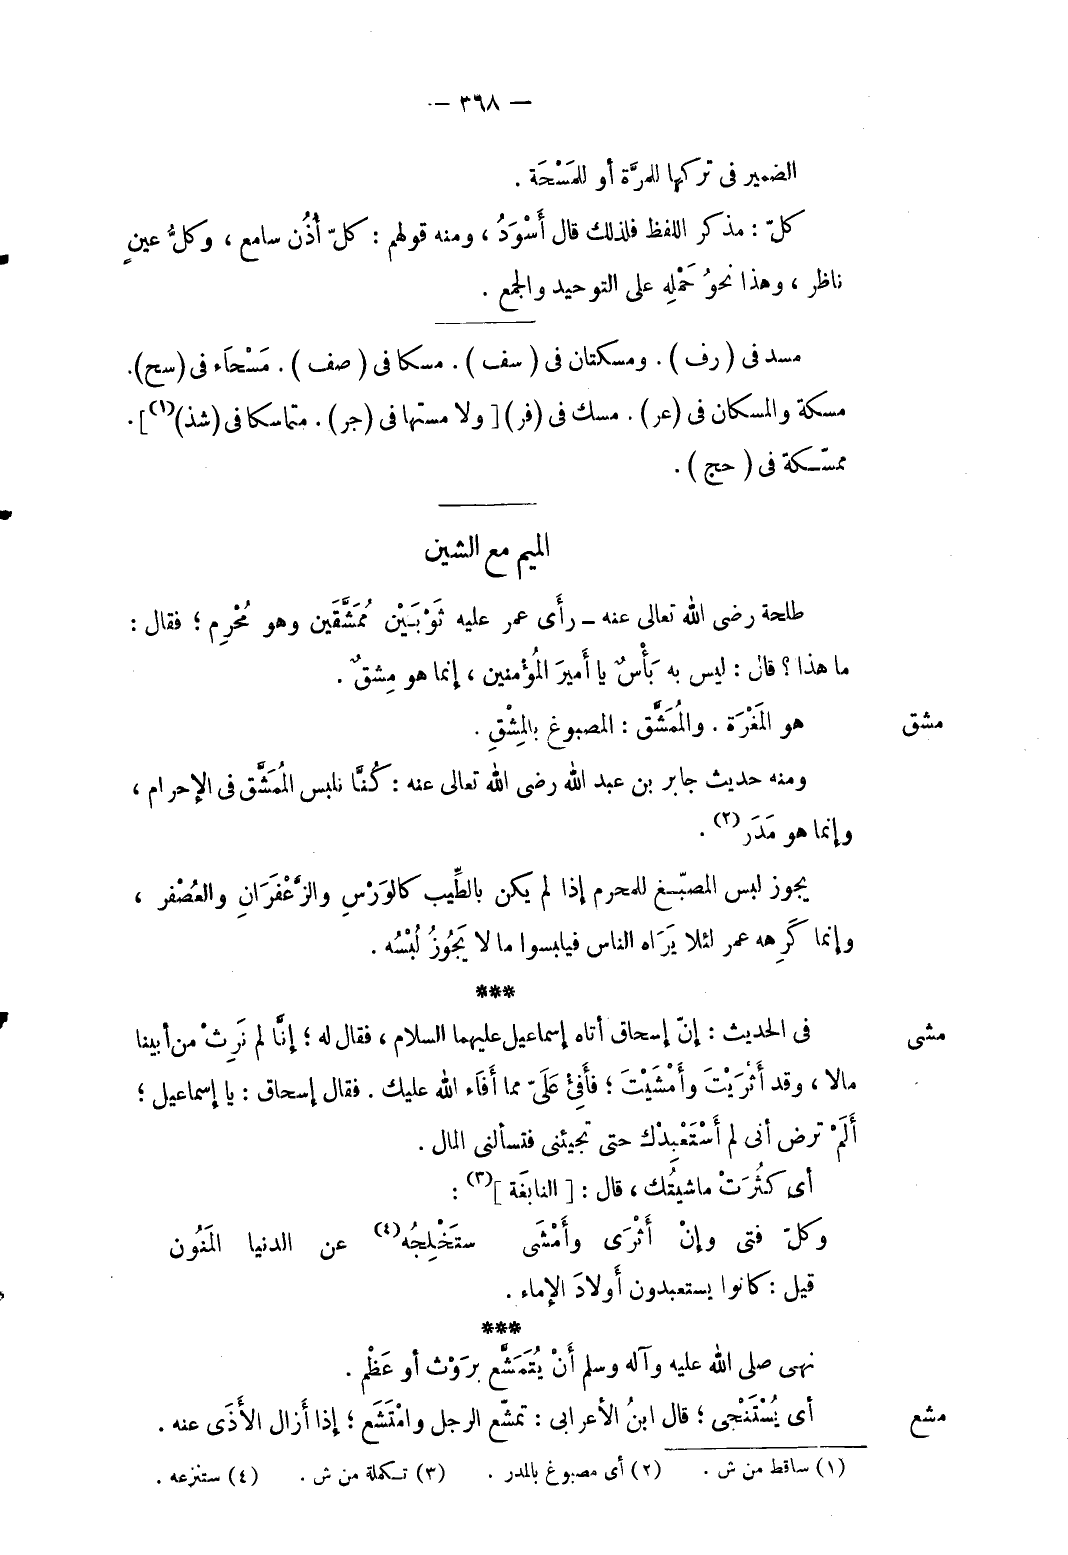 — ٣٦٨ —
الضمير فى تركها للمرَّة أو للمَسْحَة .
كلّ : مذكر اللفظ فلذلك قال أَسْوَدُ ، ومنه قولهم : كلّ أُذُن سامع ، وكلُّ عينٍ
ناظر ، وهذا نحوُ حَمْلِهِ على التوحيد والجمع .
مسد فى ( رف ) . ومسكتان فى ( سف ) . مسكا فى ( صف ) . مَسْحَاء فى (سح).
مسكة والمسكان فى (عر) . مسك فى (فر) [ ولا مستها فى (جر) . متماسكا فى (شذ)(١) ] .
ممسّكة فى ( حج ) .
الميم مع الشين
طلحة رضى الله تعالى عنه ـ رأَى عمر عليه ثَوْبَيْن مُمَشَّقَين وهو مُحْرِم ؛ فقال :
ما هذا ؟ قال : ليس به بَأْسٌ يا أَميرَ المُؤْمنين ، إنما هو مِشقٌ .
مشق هو المَغْرَة . والُمَشَّق : المصبوغ بالمِشْقِ .
ومنه حديث جابر بن عبد الله رضى الله تعالى عنه : كُنَّا نلبس المُمَشَّق فى الإحرام ،
وإنما هو مَدَر(٢) .
يجوز لبس المصبّغ للمحرم إذا لم يكن بالطِّيب كالوَرْسِ والزَّعْفَرَانِ والعُصْفر ،
وإنما كَرِهه عمر لئلا يَرَاه الناس فيلبسوا ما لا يَجُوزُ لُبْسُه .
***
مشى فى الحديث : إنّ إسحاق أتاه إسماعيل عليهما السلام ، فقال له ؛ إنَّا لم نَرِثْ من أبينا
مالا ، وقد أَثْرَيْتَ وأَمْشَيْتَ ؛ فأَفِئْ عَلَىّ مما أَفَاء الله عليك . فقال إسحاق : يا إسماعيل ؛
أَلَمْ ترض أنى لم أَسْتَعْبِدْك حتى تجيئنى فتسألنى المال .
أى كثُرَتْ ماشيتُك ، قال : [ النابغَة ](٣) :
وكلّ فتى وإنْ أَثْرَى وأَمْشَى ستَخْلِجُه(٤) عن الدنيا المَنُون
قيل : كانوا يستعبدون أَولادَ الإماء .
***
نهى صلى الله عليه وآله وسلم أَنْ يُتَمَشَّع بِرَوْث أو عَظْم .
مشع أى يُسْتَنْجى ؛ قال ابنُ الأعرابى : تمشّع الرجل وامْتَشَع ؛ إذا أَزال الأَذَى عنه .
(١) ساقط من ش . (٢) أى مصبوغ بالمدر . (٣) تكملة من ش . (٤) ستنزعه .